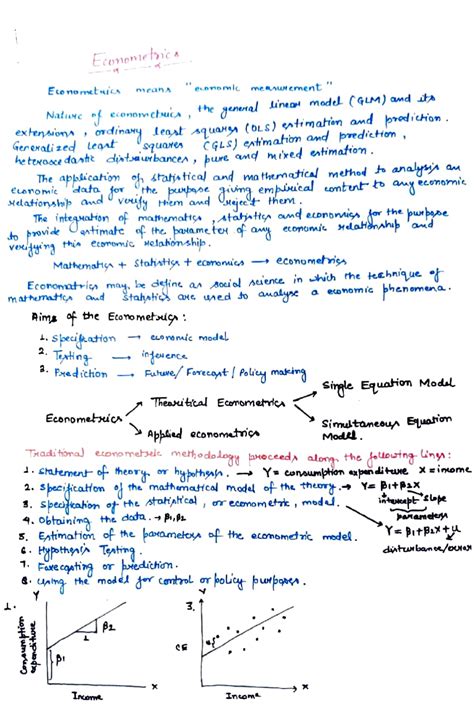 Econometrics
Econometrics means "economic measurement"
Nature of econometrics, the general linear model (GLM) and its
extensions, ordinary least squares (OLS) estimation and prediction.
Generalized least squares (GLS) estimation and prediction,
heteroscedastic distrurbances, pure and mixed estimation.
The application of statistical and mathematical method to analysis an
economic data for the purpose giving empirical content to any economic
relationship and verify them and reject them.
The integration of mathematics, statistics and economics for the purpose
to provide estimate of the parameter of any economic relationship and
verifying this economic relationship.
Mathematics + Statistics + economics → econometrics
Econometrics may be define as social science in which the technique of
mathematics and statistics are used to analyse a economic phenomena.
Aims of the Econometrics :
1. Specification → economic model
2. Testing → inference
3. Prediction → Future/Forecast/Policy making
Econometrics
Theoritical Econometrics
Applied econometrics
Single Equation Model
Simultaneous Equation
Model.
Traditional econometric methodology proceeds along the following lines:
1. Statement of theory or hypothesis. → Y = consumption expenditure X = income
2. Specification of the mathematical model of the theory. → Y = β1+β2X
intercept slope
parameters
3. Specification of the statistical, or econometric, model.
Y = β1+β2X+μ
disturbance/error
4. Obtaining the data. → β1,β2
5. Estimation of the parameters of the econometric model.
6. Hypothesis Testing.
7. Forecasting or prediction.
8. Using the model for control or policy purposes.
1.
Y
Consumption
expenditure
β1
1
β2
X
Income
3.
Y
CE
X
Income